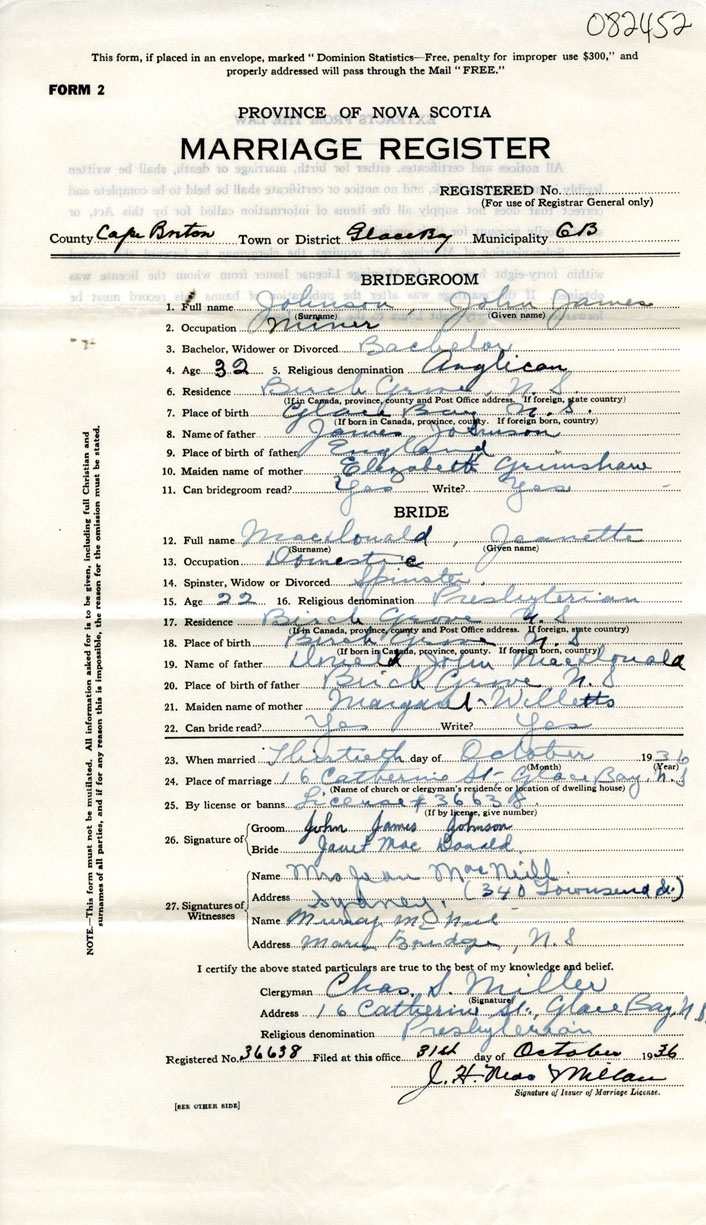 082452
This form, if placed in an envelope, marked "Dominion Statistics—Free, penalty for improper use $300," and
properly addressed will pass through the Mail "FREE."
FORM 2
PROVINCE OF NOVA SCOTIA
MARRIAGE REGISTER
REGISTERED No.
(For use of Registrar General only)
County Cape Breton Town or District Glace Bay Municipality CB
BRIDEGROOM
1. Full name Johnson, John James
(Surname) (Given name)
2. Occupation Miner
3. Bachelor, Widower or Divorced Bachelor
4. Age 32 5. Religious denomination Anglican
6. Residence Birch Grove, N.S.
(If in Canada, province, county and Post Office address. If foreign, state country)
7. Place of birth Glace Bay N.S.
(If born in Canada, province, county. If foreign born, country)
8. Name of father James Johnson
9. Place of birth of father England
10. Maiden name of mother Elizabeth Grimshaw
11. Can bridegroom read? Yes Write? Yes
BRIDE
12. Full name MacDonald, Jeanette
(Surname) (Given name)
13. Occupation Domestic
14. Spinster, Widow or Divorced Spinster
15. Age 22 16. Religious denomination Presbyterian
17. Residence Birch Grove N.S
(If in Canada, province, county and Post Office address. If foreign, state country)
18. Place of birth Birch Grove N.S.
(If born in Canada, province, county. If foreign born, country)
19. Name of father Donald John MacDonald
20. Place of birth of father Birch Grove N.S
21. Maiden name of mother Margaret Willetts
22. Can bride read? Yes Write? Yes
23. When married Thirtieth day of October 1936
(Month) (Year)
24. Place of marriage 16 Catherine St. Glace Bay, N.S
(Name of church or clergyman's residence or location of dwelling house)
25. By license or banns License # 36638
(If by license, give number)
26. Signature of Groom John James Johnson
Bride Janet Mac Donald
27. Signatures of Witnesses
Name Mrs Jean MacNeill
Address Sydney. (340 Townsend St.)
Name Murray McNeil
Address Marion Bridge, N.S
I certify the above stated particulars are true to the best of my knowledge and belief.
Clergyman Chas. S. Miller
(Signature)
Address 16 Catherine St., Glace Bay, N.S.
Religious denomination Presbyterian
Registered No. 36638 Filed at this office 31st day of October 1936
J. H. Mac Millan
Signature of Issuer of Marriage License.
[SEE OTHER SIDE]
NOTE.—This form must not be mutilated. All information asked for is to be given, including full Christian and
surnames of all parties, and if for any reason this is impossible, the reason for the omission must be stated.